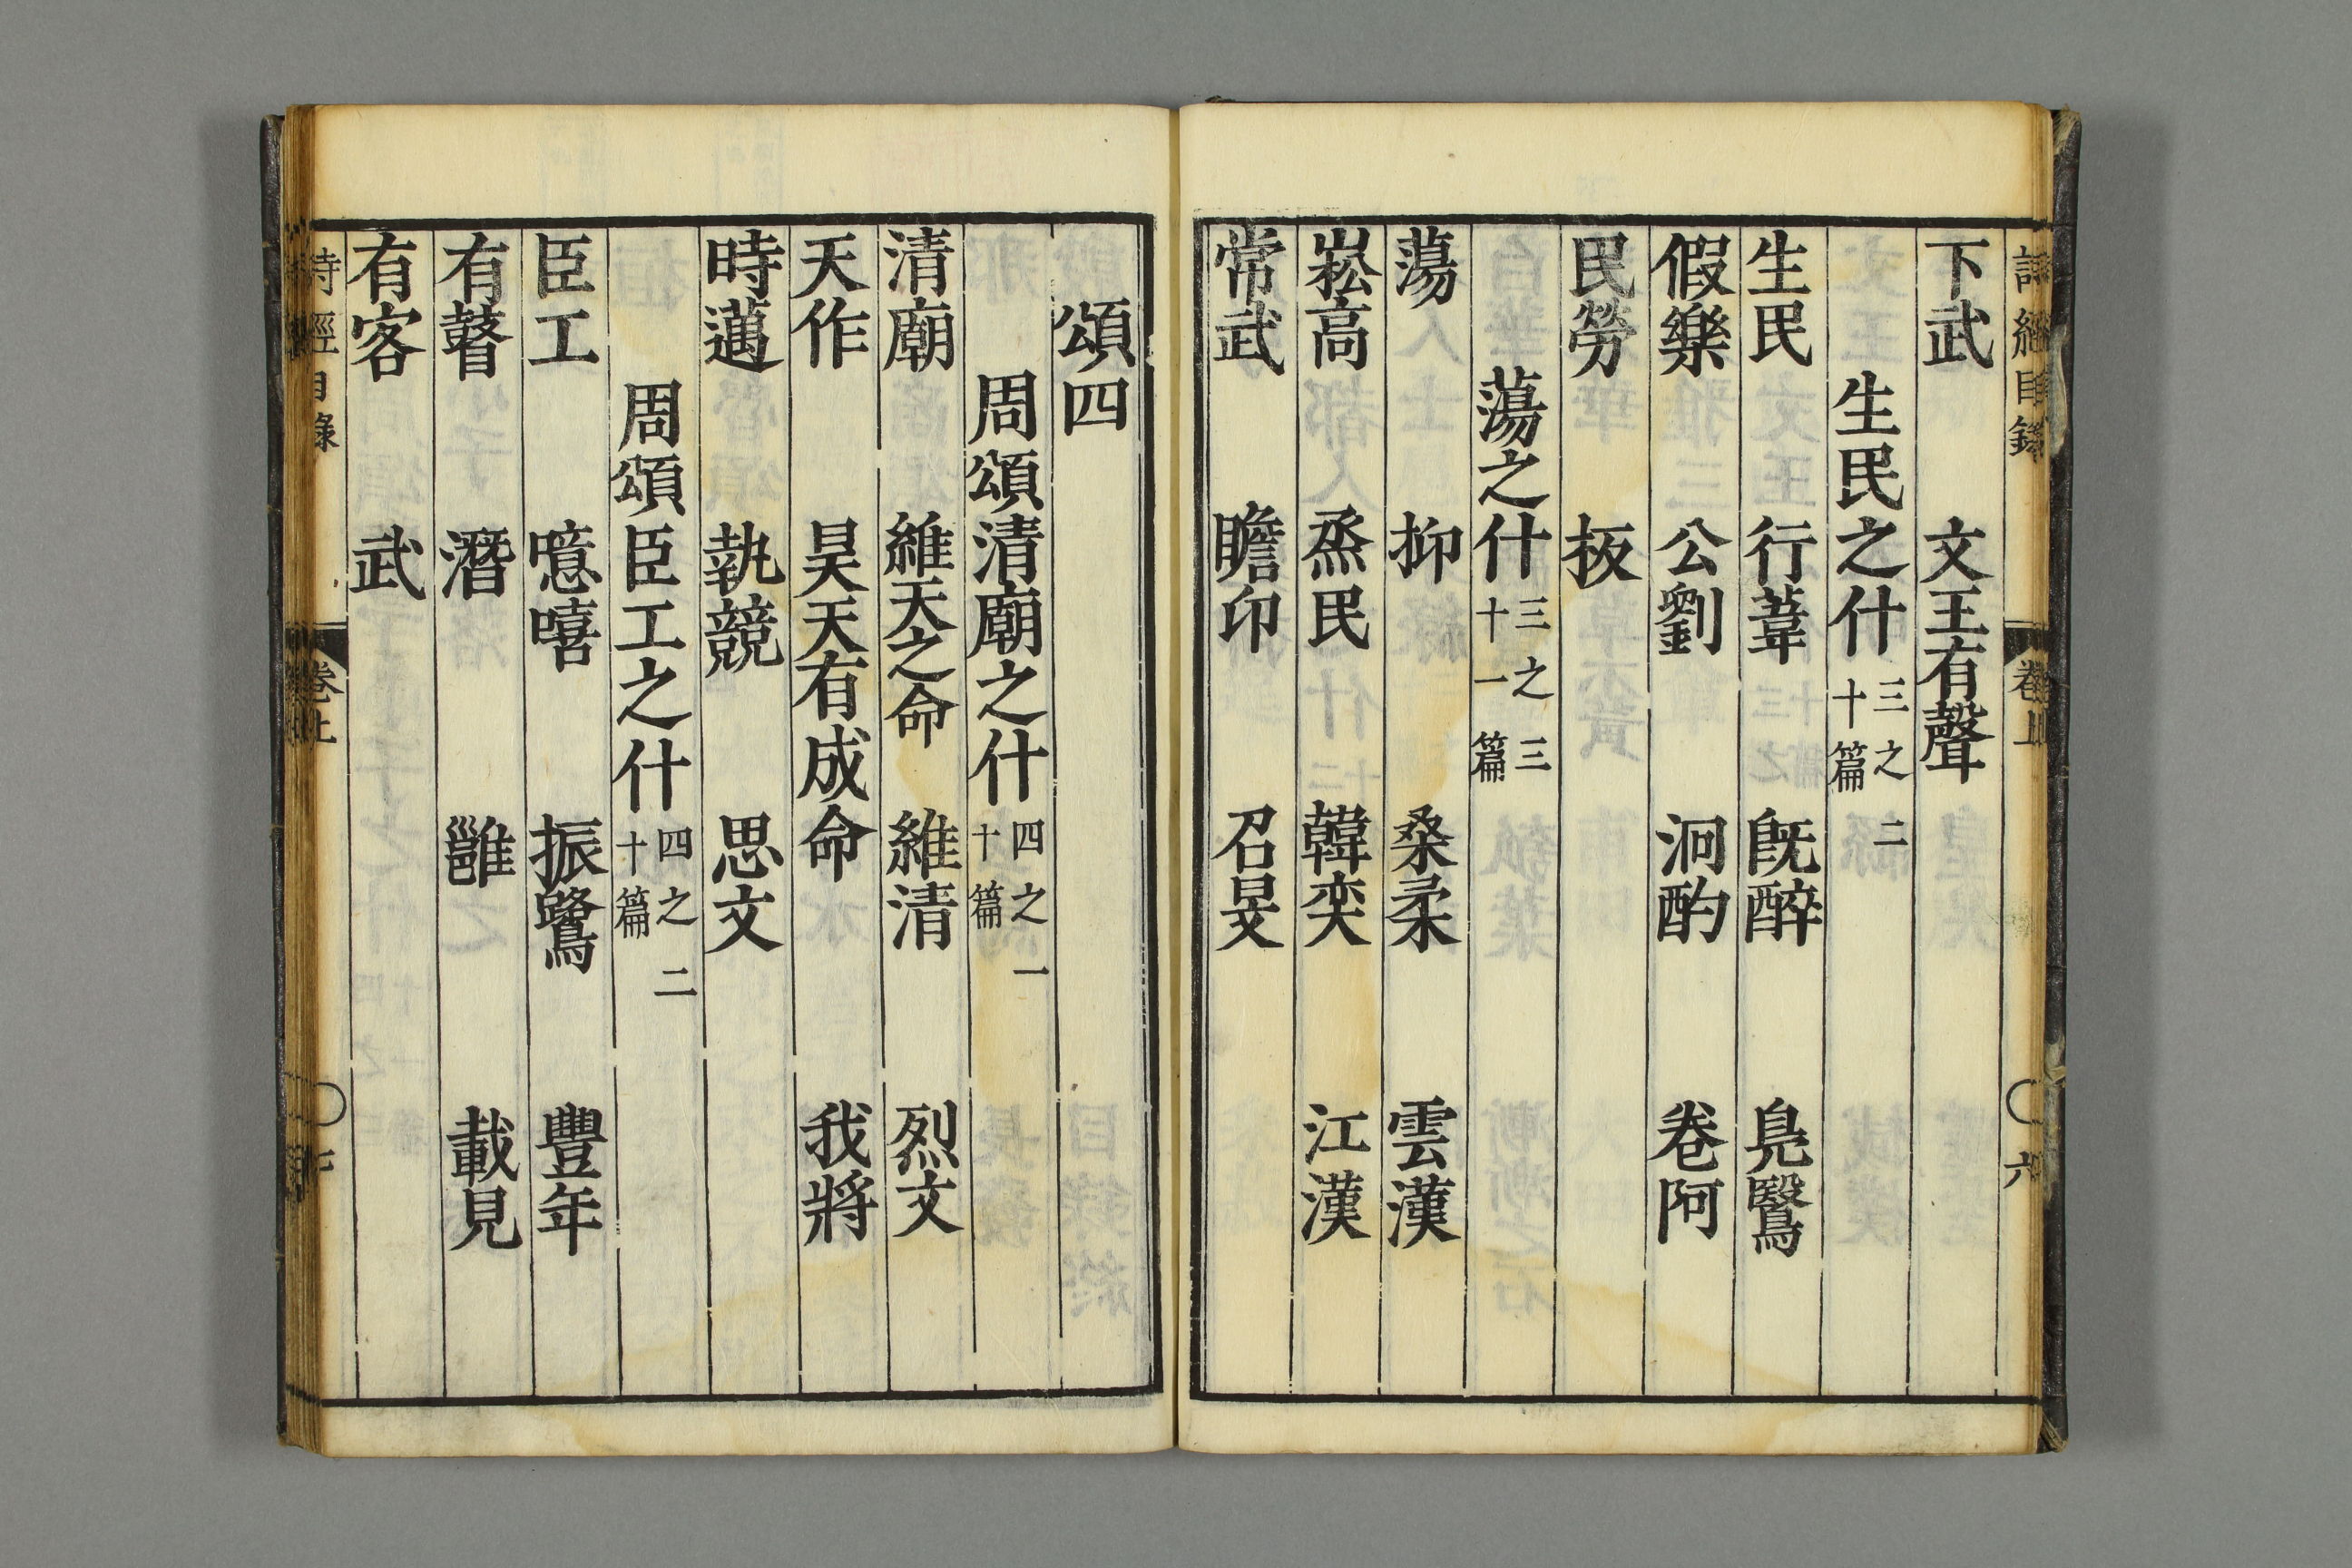 下武 文王有聲
生民之什 三之二 十篇
生民 行葦 旣醉 鳧鷖
假樂 公劉 泂酌 卷阿
民勞 板
蕩之什 三之三 十一篇
蕩 抑 桑柔 雲漢
崧高 烝民 韓奕 江漢
常武 瞻卬 召旻
頌四
周頌清廟之什 四之一 十篇
清廟 維天之命 維清 烈文
天作 昊天有成命 我將
時邁 執競 思文
周頌臣工之什 四之二 十篇
臣工 噫嘻 振鷺 豐年
有瞽 潛 雝 載見
有客 武
詩經目錄 卷上 六
詩經目錄 卷上 七